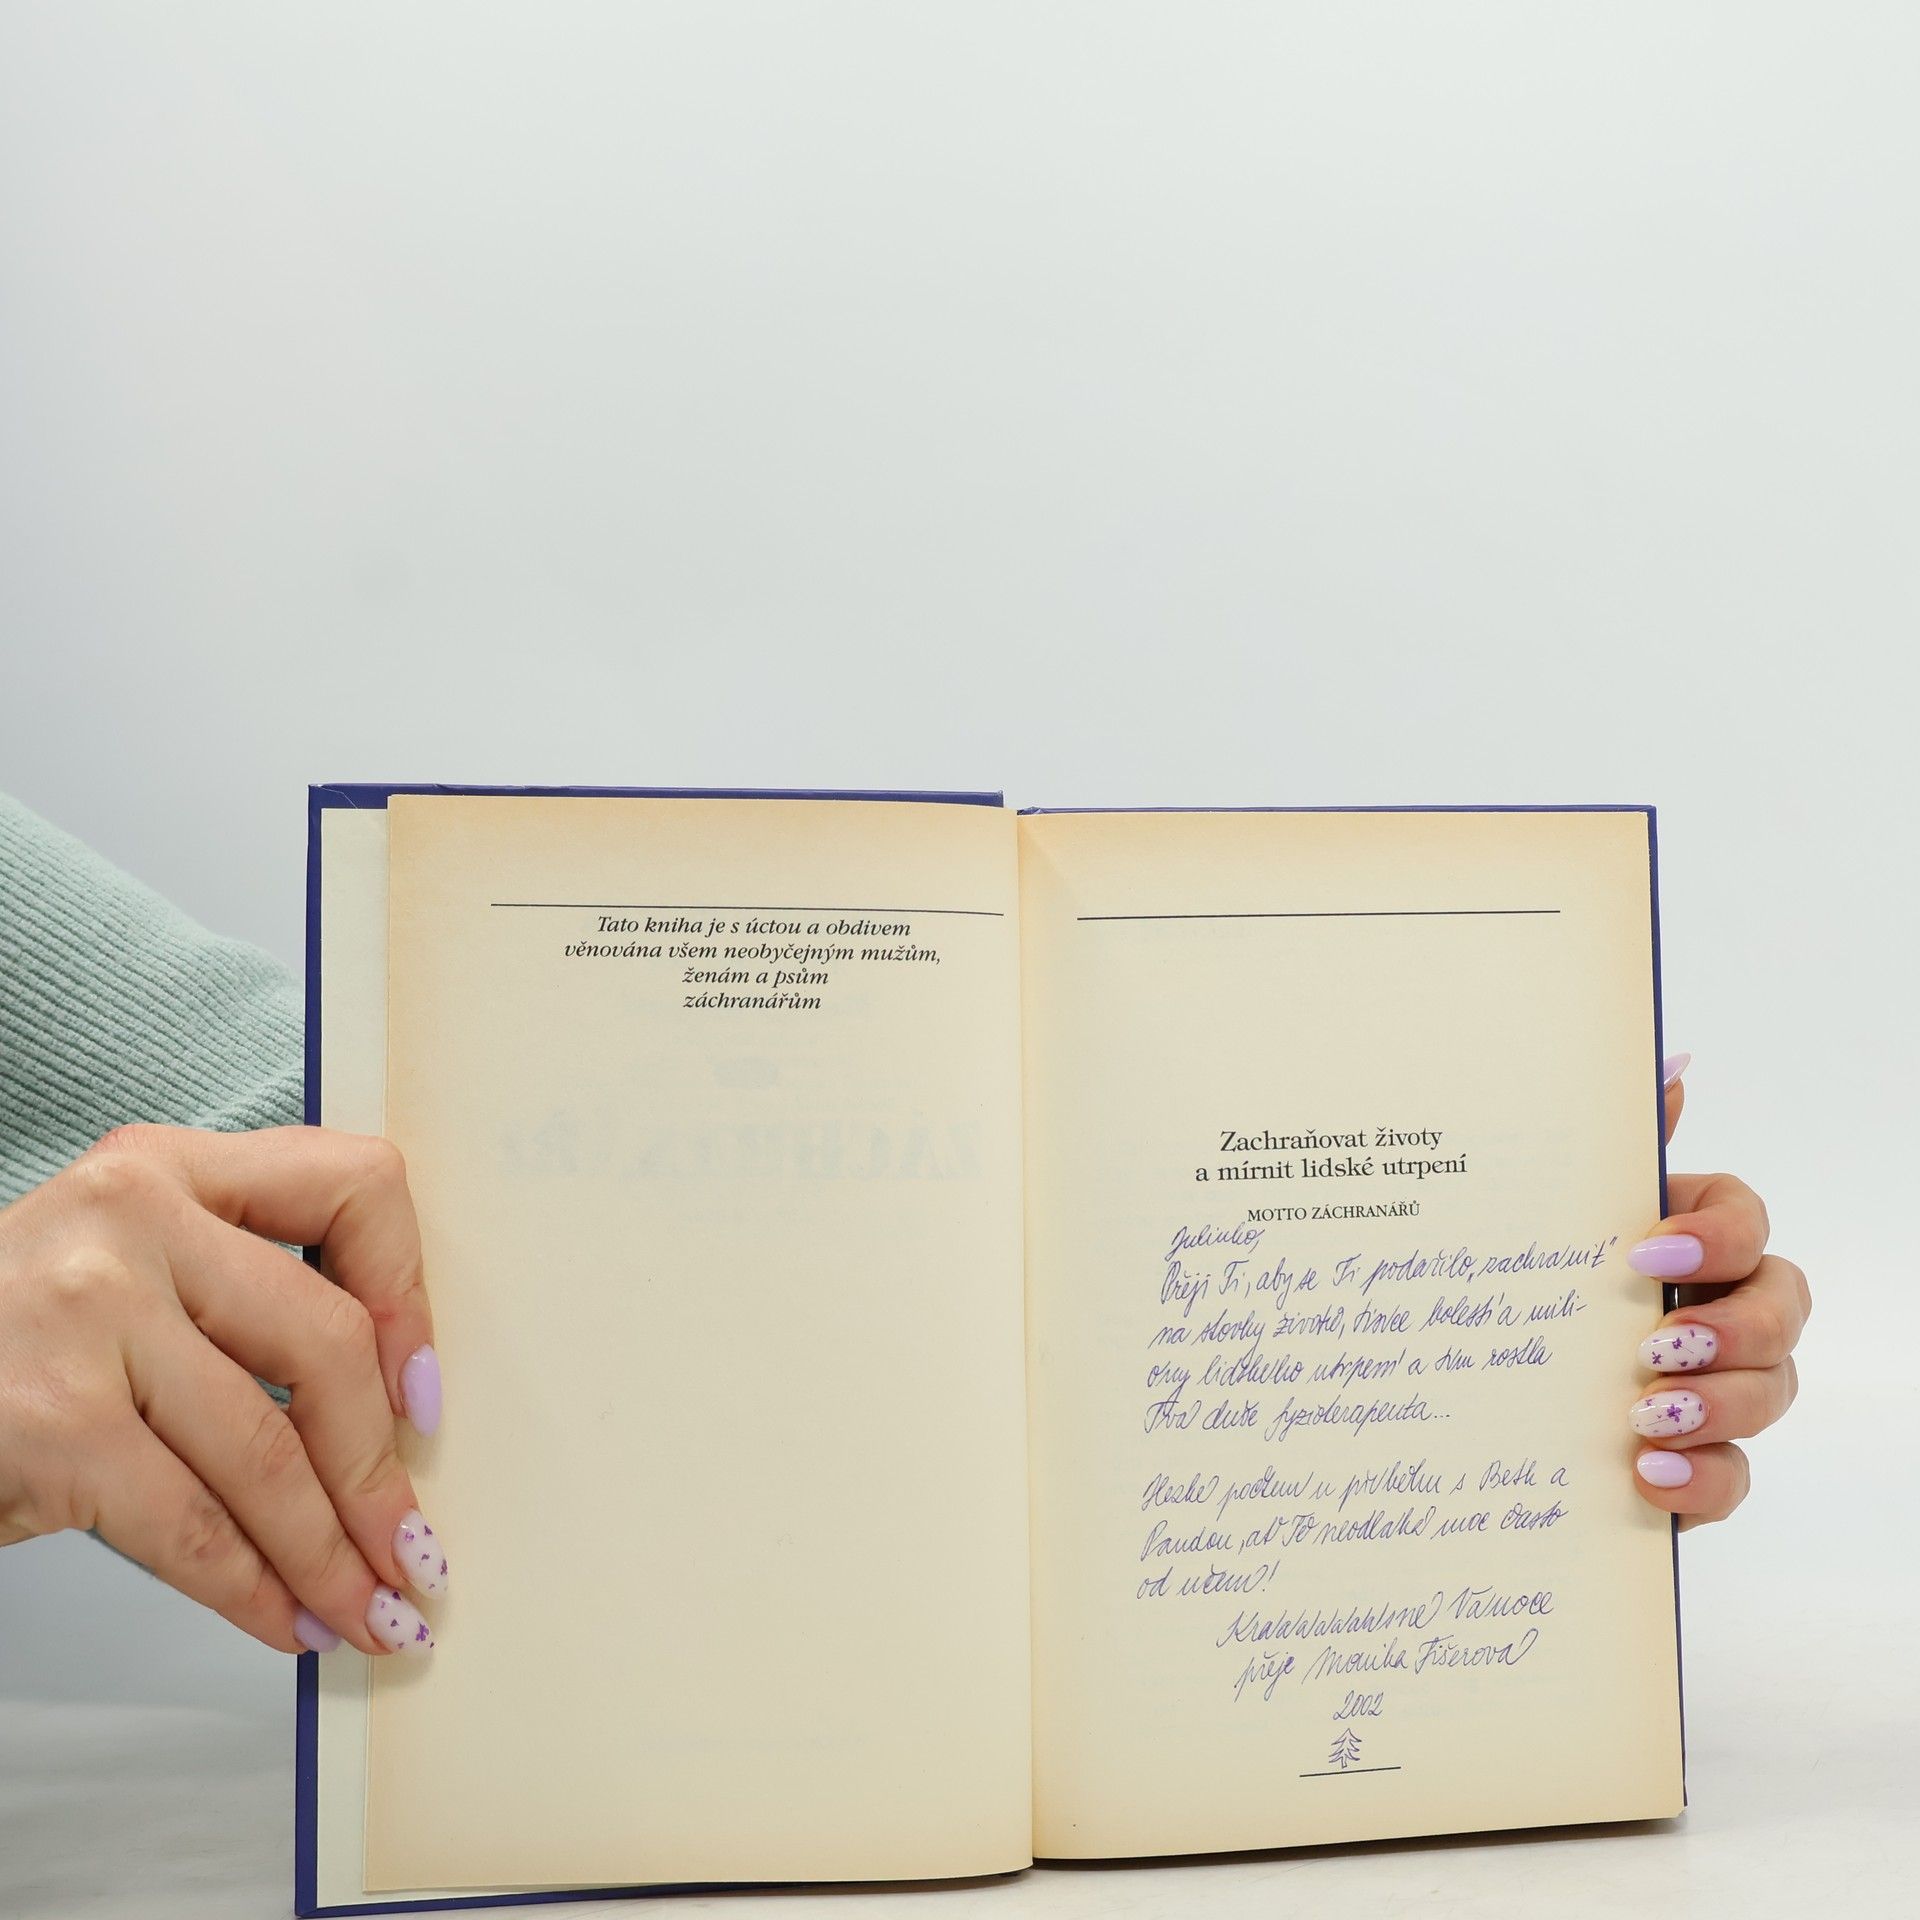 Tato kniha je s úctou a obdivem
věnována všem neobyčejným mužům,
ženám a psům
záchranářům
Zachraňovat životy
a mírnit lidské utrpení
MOTTO ZÁCHRANÁŘŮ
Julinko,
Přeji Ti, aby se Ti podařilo „zachranit"
na stovky životů, tisíce bolestí a mili-
ony lidského utrpení a tím rostla
Tvá duše fyzioterapeuta...
Hezké počtení u příběhu s Beth a
Pandou, ať Tě neodláká moc často
od učení!
Kráááááásné Vánoce
přeje Monika Fišerová
2002